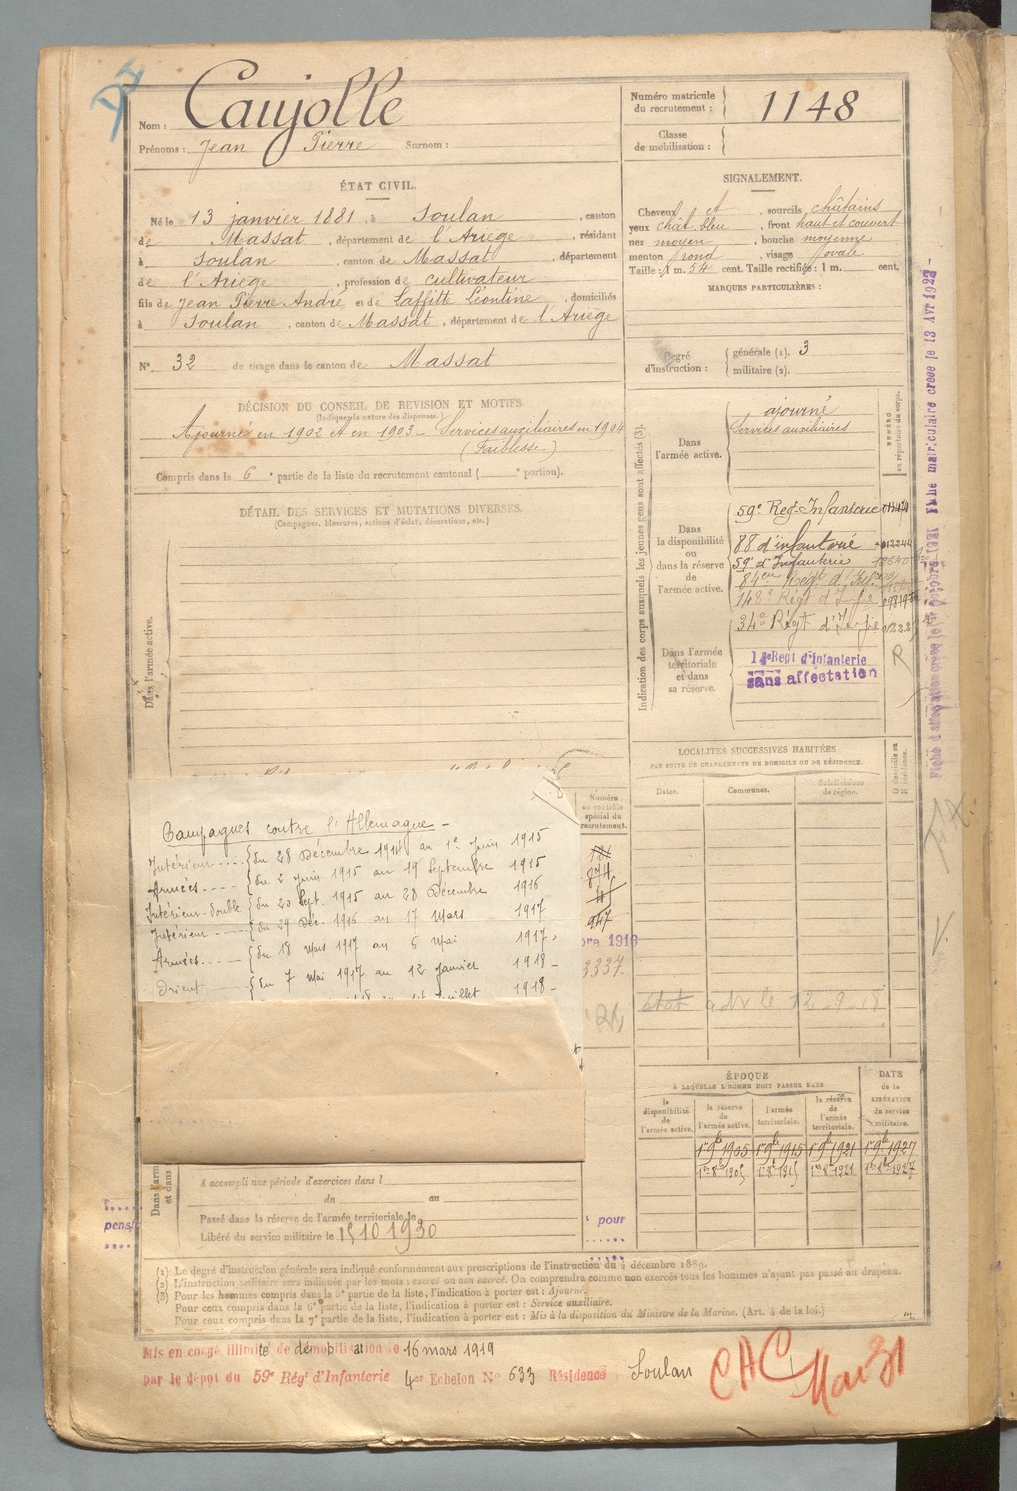 Nom : Caujolle
Prénoms : Jean Pierre Surnom :
Numéro matricule du recrutement : 1148
Classe de mobilisation :
ÉTAT CIVIL.
Né le 13 janvier 1881, à Soulan, canton
de Massat, département de l'Ariège, résidant
à Soulan, canton de Massat, département
de l'Ariège, profession de cultivateur
fils de Jean Pierre André et de Laffitte Léontine, domiciliés
à Soulan, canton de Massat, département de l'Ariège
N° 32 de tirage dans le canton de Massat
SIGNALEMENT.
Cheveux et, sourcils châtains
yeux chât. bleu, front haut et couvert
nez moyen, bouche moyenne
menton rond, visage ovale
Taille : 1 m. 54 cent. Taille rectifiée : 1 m. cent.
MARQUES PARTICULIÈRES :
Degré d'instruction : générale (1). 3
militaire (2).
DÉCISION DU CONSEIL DE REVISION ET MOTIFS.
(Indiquer la nature des dispenses.)
Ajourné en 1902 et en 1903 - Services auxiliaires en 1904
(Faiblesse)
Compris dans la 6e partie de la liste du recrutement cantonal ( e portion).
DÉTAIL DES SERVICES ET MUTATIONS DIVERSES.
(Campagnes, blessures, actions d'éclat, décorations, etc.)
Dans l'armée active.
Indication des corps auxquels les jeunes gens sont affectés (3).
NUMÉRO au répertoire du corps.
Dans l'armée active.
ajourné
Services auxiliaires
Dans la disponibilité ou dans la réserve de l'armée active.
59e Reg. Infanterie
88 d'infanterie 012244
59e d'Infanterie
84eme Régt d'Inf.
148e Régt d'Infie
34e Régt d'Infie
Dans l'armée territoriale et dans sa réserve.
14e Regt d'Infanterie
sans affectation
R
LOCALITÉS SUCCESSIVES HABITÉES
PAR SUITE DE CHANGEMENTS DE DOMICILE OU DE RÉSIDENCE.
Dates. Communes. Subdivisions de région. D domicile ou R résidence.
Campagnes contre l'Allemagne -
Intérieur .... du 28 Décembre 1914 au 1er Juin 1915
Armées .... du 2 juin 1915 au 19 Septembre 1915
Intérieur double du 20 Sept. 1915 au 28 Décembre 1916
Intérieur .... du 29 Déc. 1916 au 17 Mars 1917
Armées .... du 18 mars 1917 au 6 Mai 1917
Orient du 7 Mai 1917 au 12 janvier 1918 -
juillet 1918 -
Numéro au contrôle spécial du recrutement.
947
bre 1916
3337.
état adr le 12-9-18
ÉPOQUE
À LAQUELLE L'HOMME DOIT PASSER DANS
la disponibilité de l'armée active. la réserve de l'armée active. l'armée territoriale. la réserve de l'armée territoriale.
DATE de la LIBÉRATION du service militaire.
1er 9bre 1905 1er 9bre 1915 1er 9bre 1921 1er 9bre 1927
1er 8bre 1905 1er 8bre 1915 1er 8bre 1921 1er 8bre 1927
A accompli une période d'exercices dans l
du au
Passé dans la réserve de l'armée territoriale le
Libéré du service militaire le 15 10 1930
pensi
pour
(1) Le degré d'instruction générale sera indiqué conformément aux prescriptions de l'instruction du 4 décembre 1889.
(2) L'instruction militaire sera indiquée par les mots : exercé ou non exercé. On comprendra comme non exercés tous les hommes n'ayant pas passé au drapeau.
(3) Pour les hommes compris dans la 5e partie de la liste, l'indication à porter est : Ajourné.
Pour ceux compris dans la 6e partie de la liste, l'indication à porter est : Service auxiliaire.
Pour ceux compris dans la 7e partie de la liste, l'indication à porter est : Mis à la disposition du Ministre de la Marine. (Art. 4 de la loi.)
Mis en congé illimité de démobilisation le 16 mars 1919
par le dépôt du 59e Régt d'Infanterie 4er Echelon N° 633 Résidence Soulan
CAC Mai 31